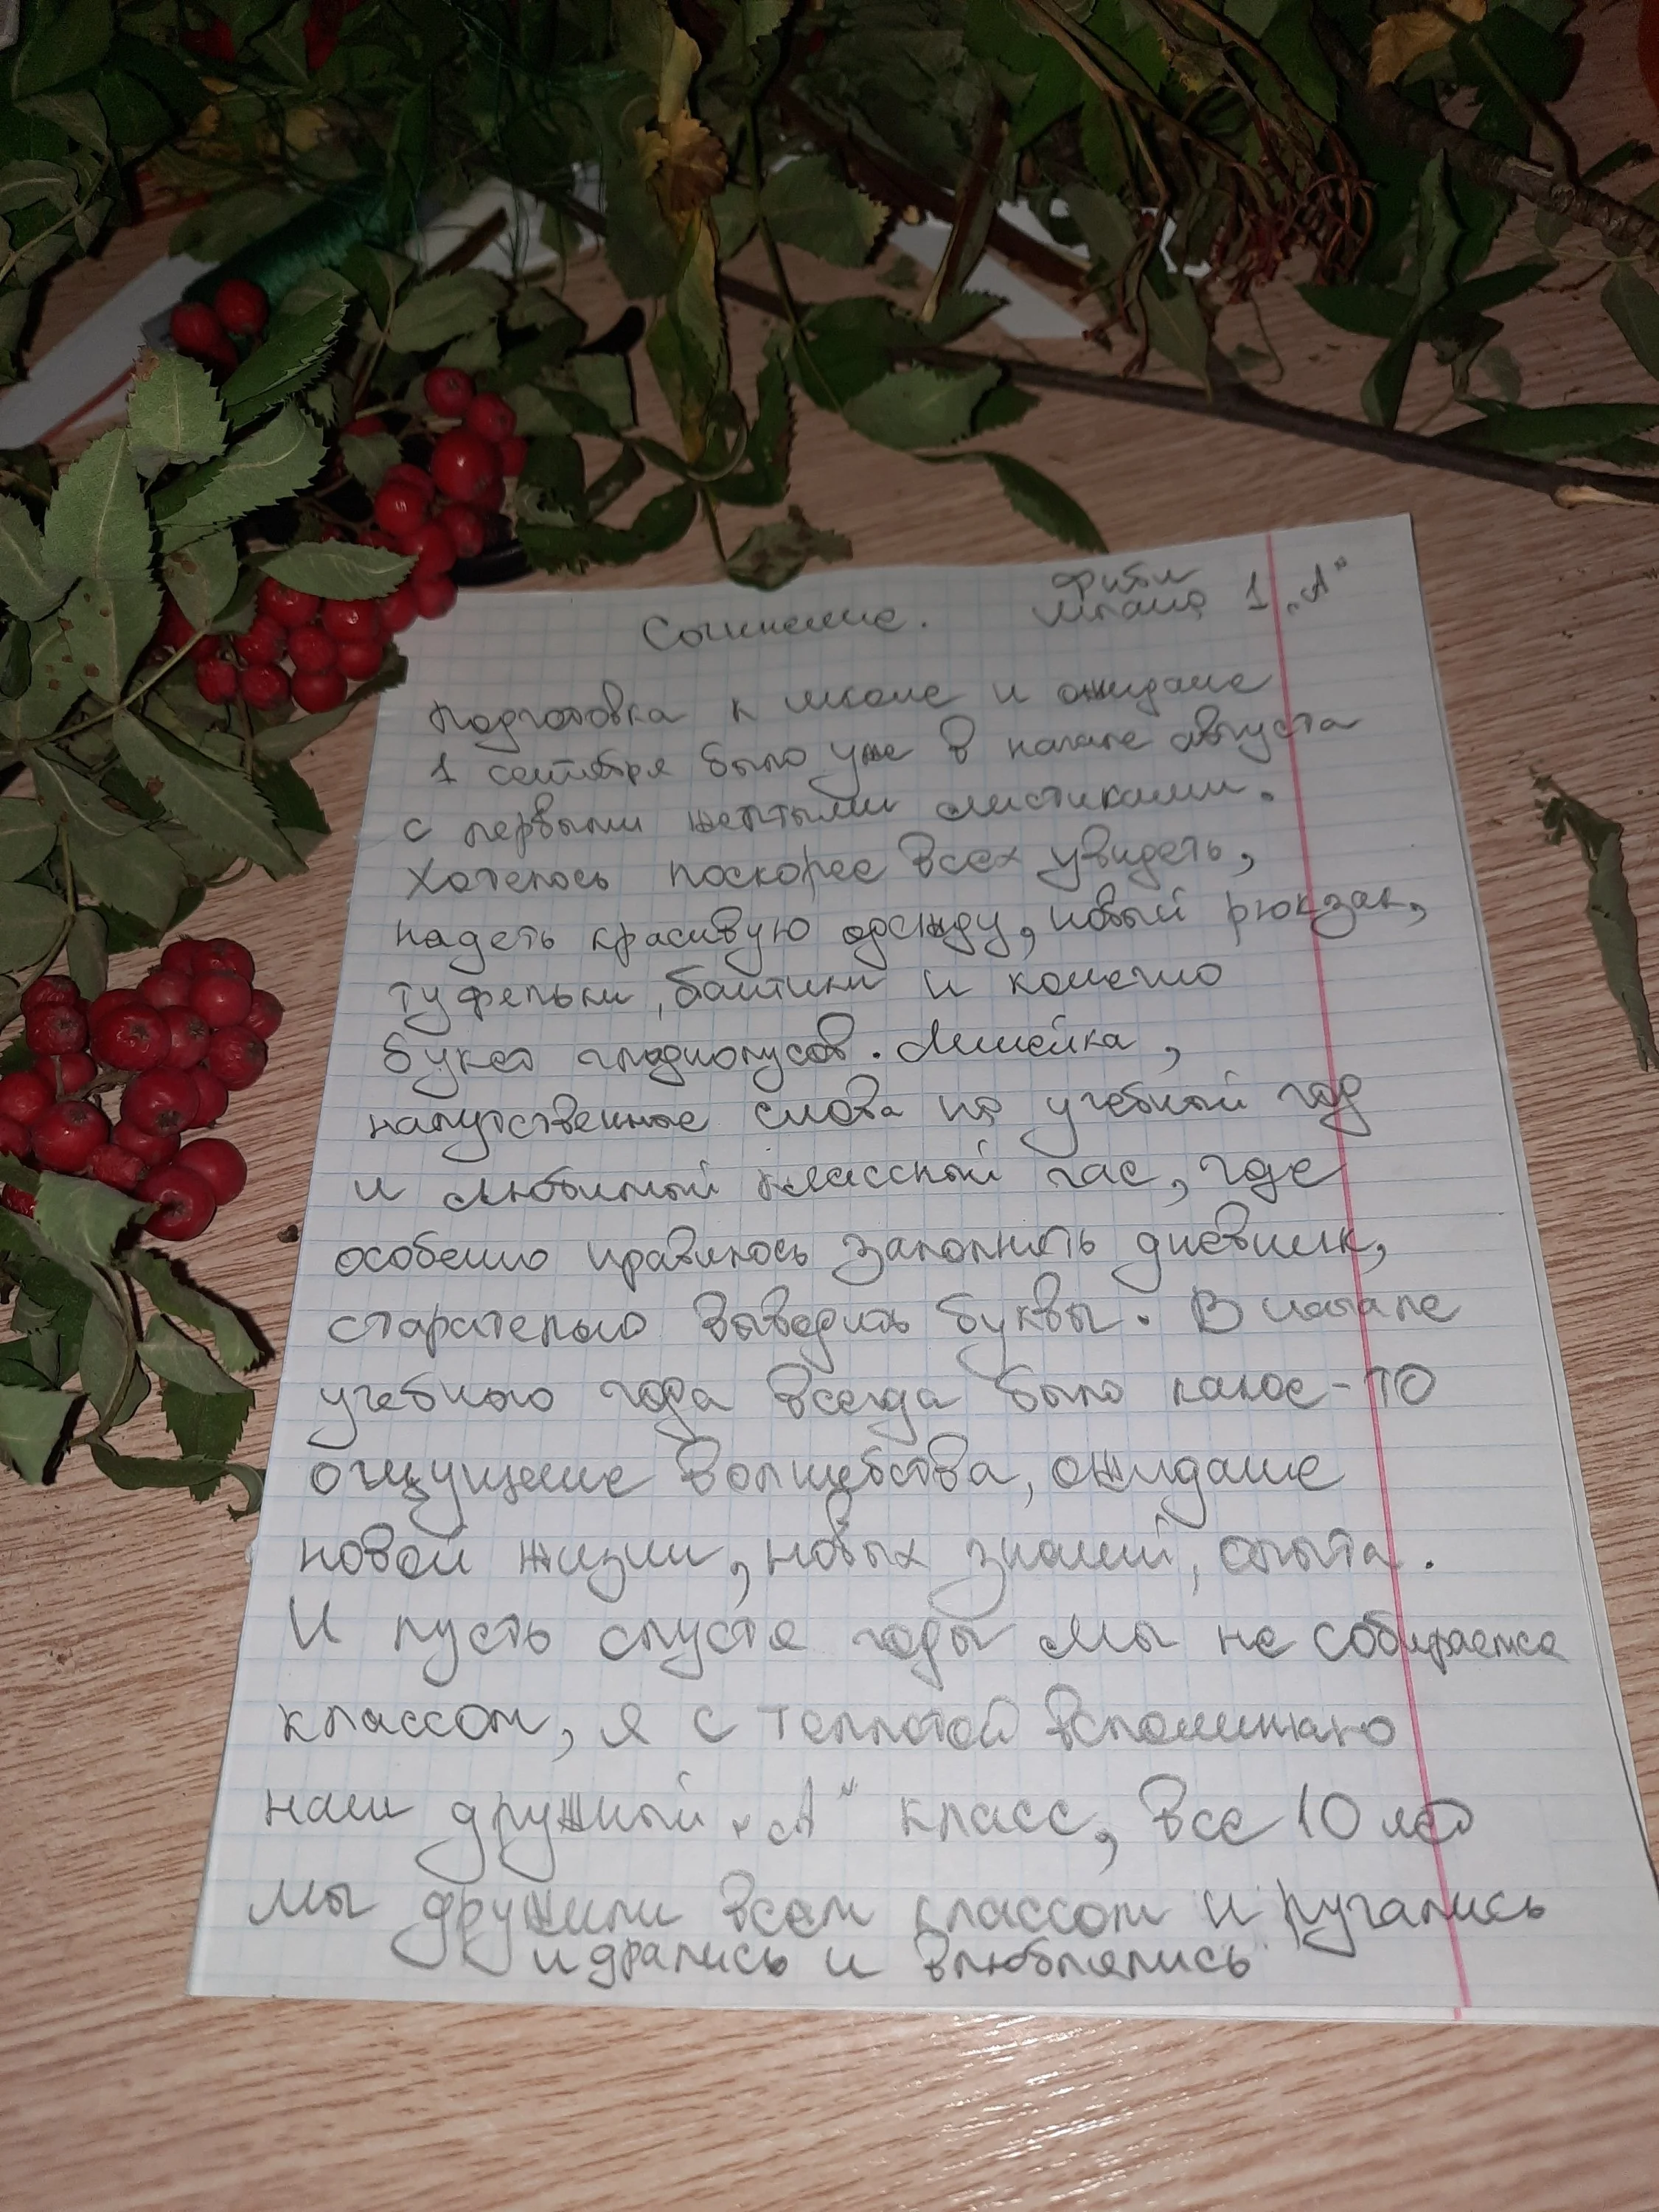 Сочинение. 1 „А"
Подготовка к школе и ожидание
1 сентября было уже в начале августа
с первыми жёлтыми листиками.
Хотелось поскорее всех увидеть,
надеть красивую одежду, новый рюкзак,
туфельки, бантики и конечно
букет гладиолусов. Линейка,
напутственные слова на учебный год
и любимый классный час, где
особенно нравилось заполнять дневник,
старательно выводить буквы. В начале
учебного года всегда было какое-то
ощущение волшебства, ожидание
новой жизни, новых знаний, опыта.
И пусть спустя годы мы не собираемся
классом, я с теплотой вспоминаю
наш дружный „А" класс, все 10 лет
мы дружили всем классом и ругались
и дрались и влюблялись